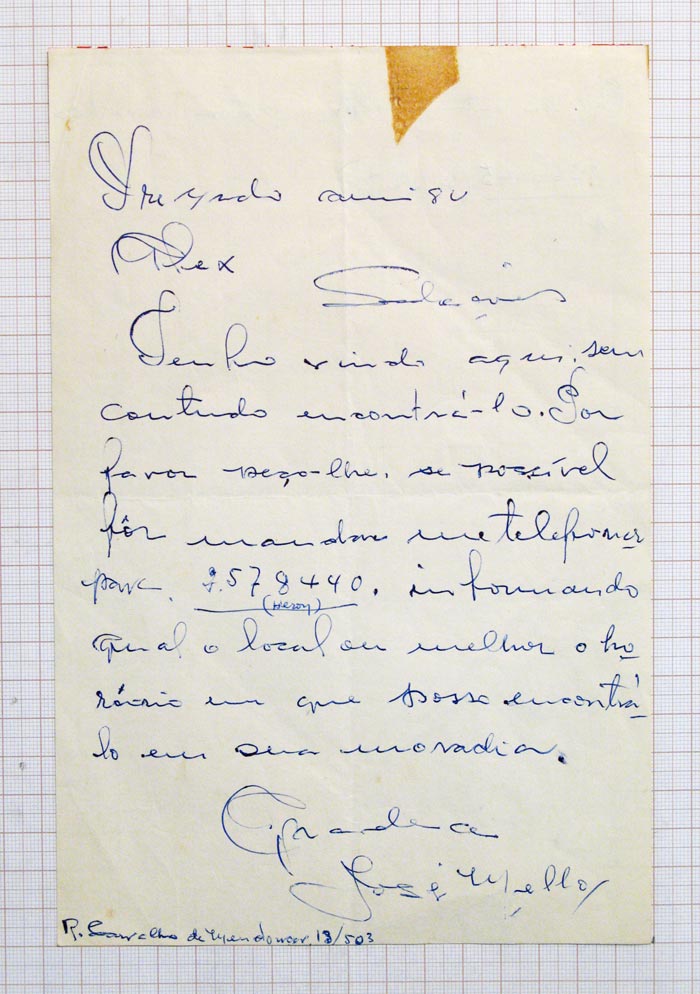 Prezado amigo
Alex
Saudações
Tenho vindo aqui, sem
contudo encontrá-lo. Por
favor peço-lhe, se possível
fôr mandar me telefonar
para 2.578440, informando
qual o local ou melhor o ho
rário em que posso encontrá-
lo em sua moradia.
Agradece
José Mello
R. Carvalho de Mendonça, 13/503